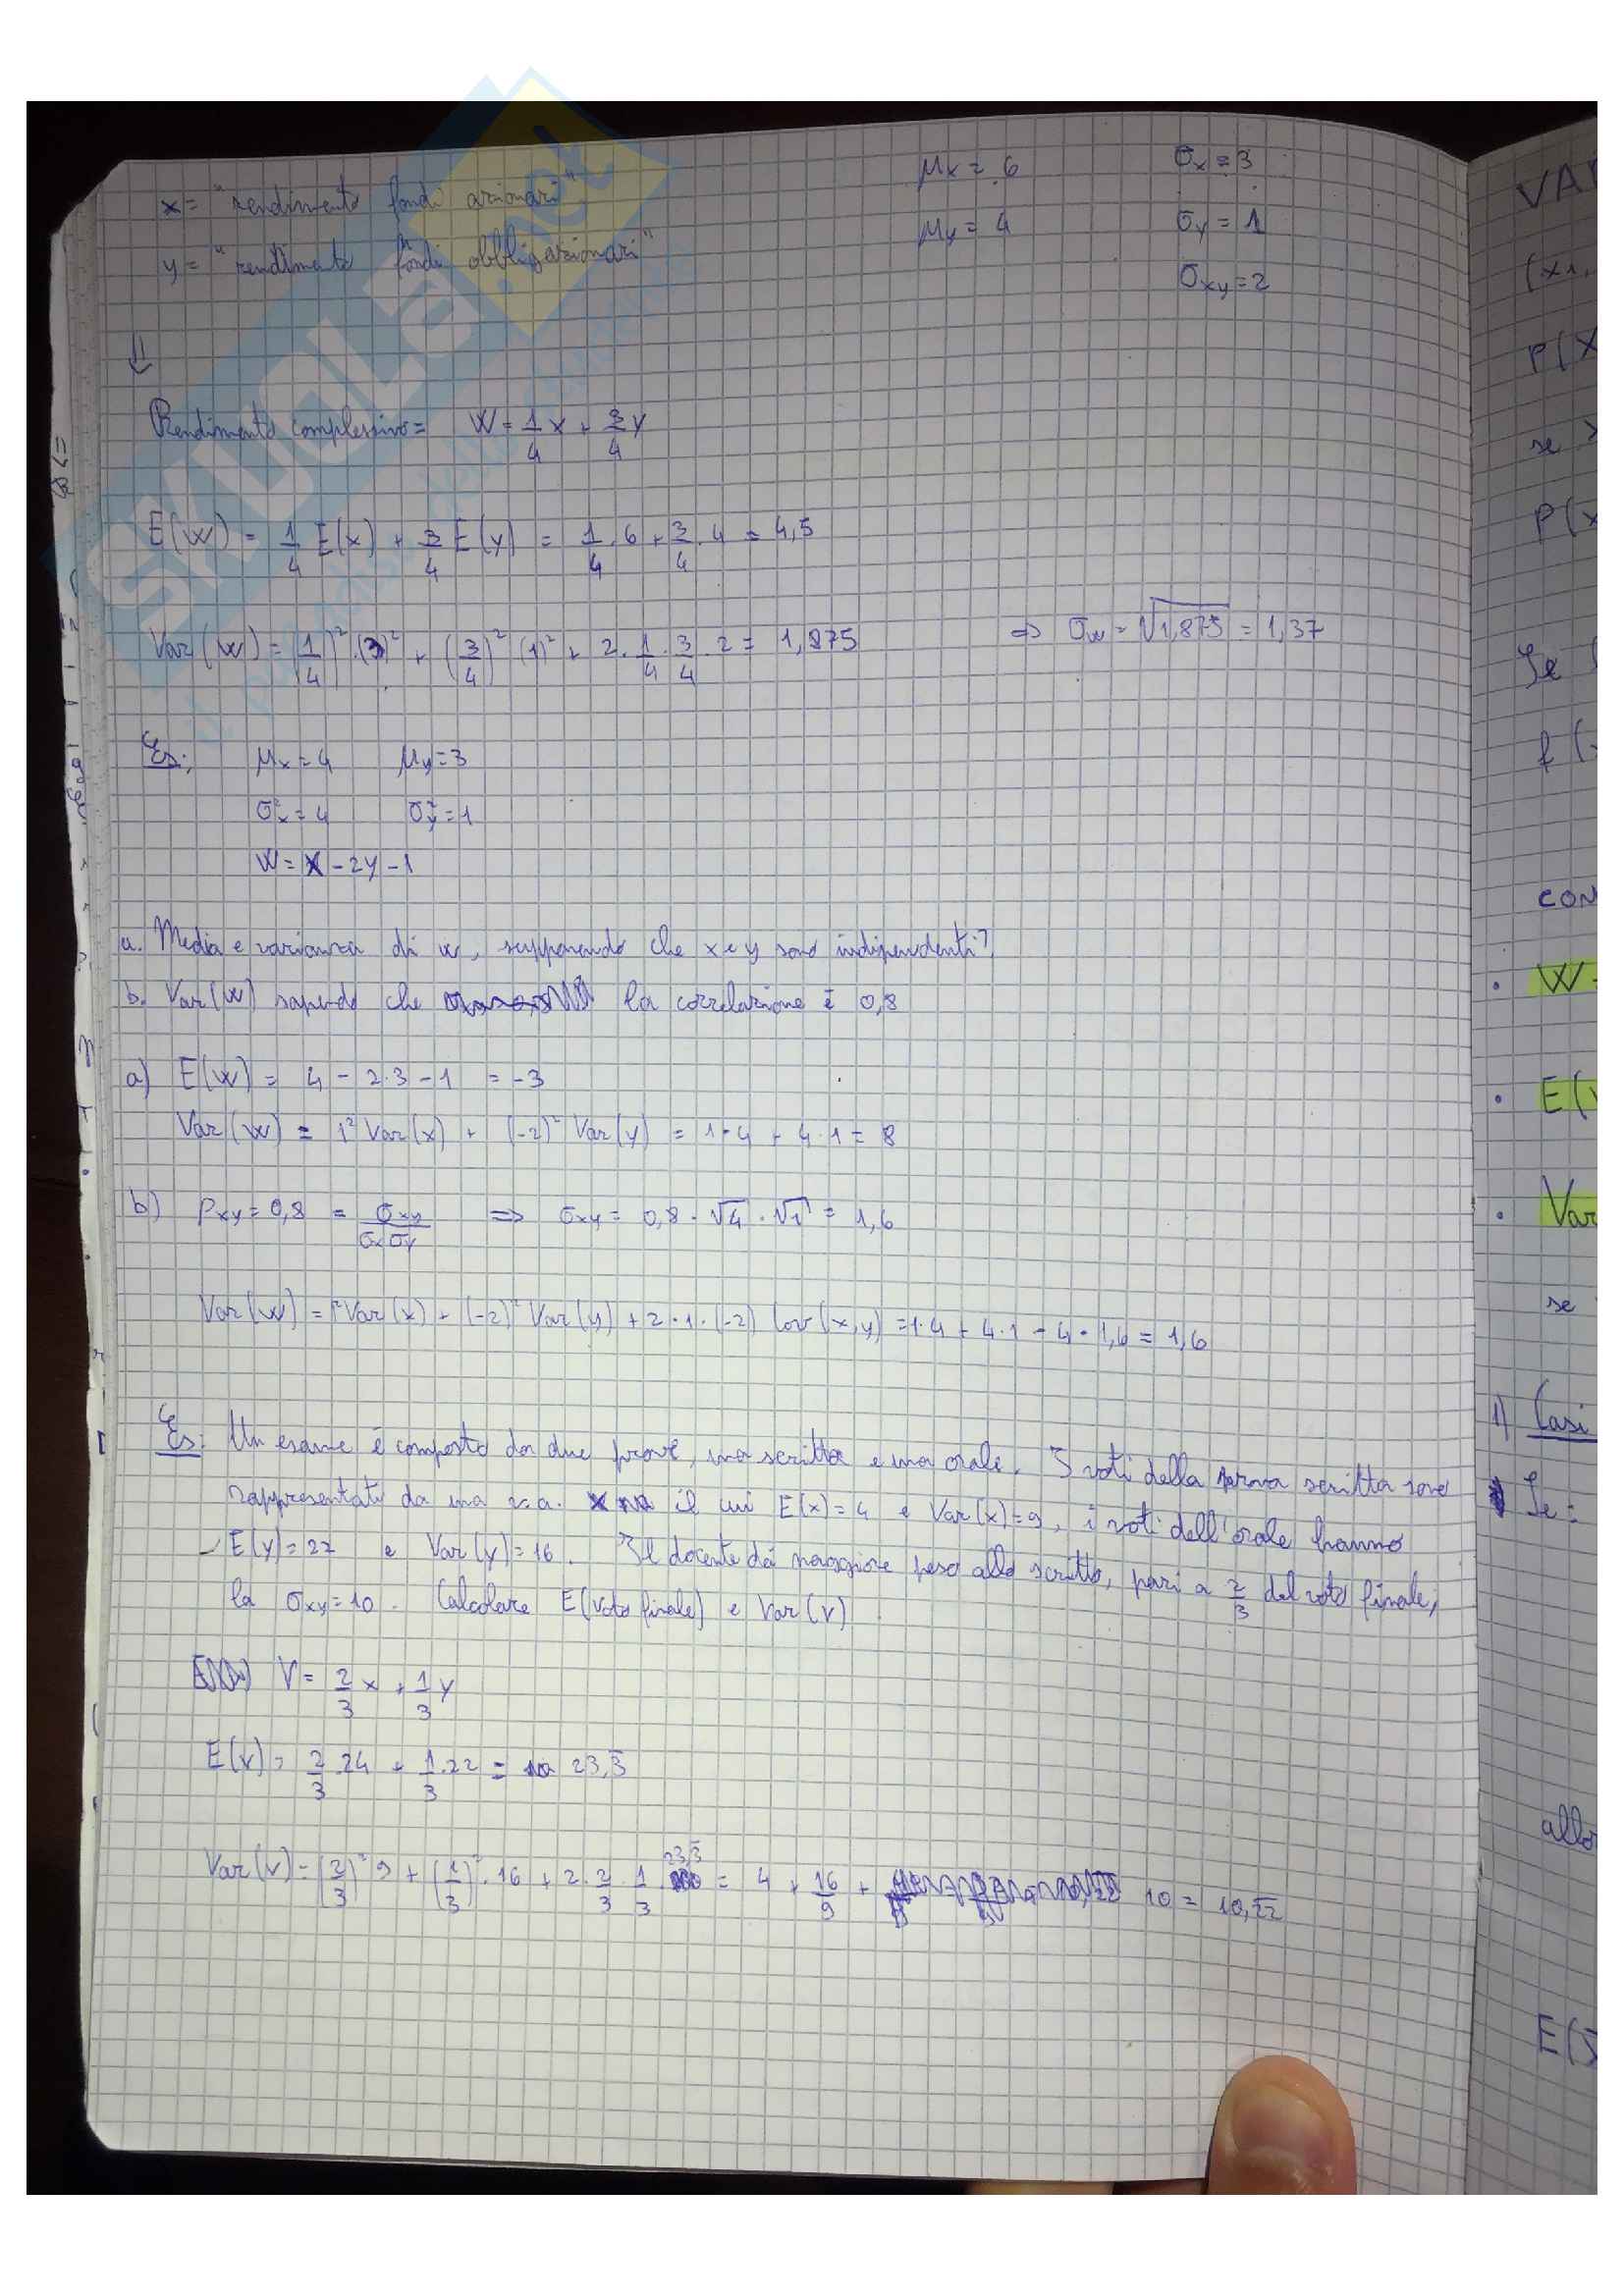 x = "rendimento fondi azionari" μx = 6 σx = 3
y = "rendimento fondi obbligazionari" μy = 4 σy = 1
σxy = 2
⇓
Rendimento complessivo = W = 1/4 x + 3/4 y
E(W) = 1/4 E(x) + 3/4 E(y) = 1/4 · 6 + 3/4 · 4 = 4,5
Var(W) = (1/4)² · (3)² + (3/4)² (1)² + 2 · 1/4 · 3/4 · 2 = 1,875 => σw = √1,875 = 1,37
Es: μx = 4 μy = 3
σ²x = 4 σ²y = 1
W = X - 2y - 1
a. Media e varianza di w, supponendo che x e y sono indipendenti?
b. Var(W) sapendo che la correlazione è 0,8
a) E(W) = 4 - 2·3 - 1 = -3
Var(W) = 1² Var(x) + (-2)² Var(y) = 1·4 + 4·1 = 8
b) ρxy = 0,8 = σxy/σxσy => σxy = 0,8 · √4 · √1 = 1,6
Var(W) = 1² Var(x) + (-2)² Var(y) + 2·1·(-2) Cov(x,y) = 1·4 + 4·1 - 4·1,6 = 1,6
Es: Un esame è composto da due prove, una scritta e una orale. I voti della prova scritta sono
rappresentati da una v.a. x il cui E(x) = 4 e Var(x) = 9, i voti dell'orale hanno
E(y) = 22 e Var(y) = 16. Il docente dà maggiore peso allo scritto, pari a 2/3 del voto finale,
la σxy = 10. Calcolare E(voto finale) e Var(V)
V = 2/3 x + 1/3 y
E(v) = 2/3 · 24 + 1/3 · 22 = 23,3̄
Var(v) = (2/3)² 9 + (1/3)² · 16 + 2 · 2/3 · 1/3 · 23,3̄ = 4 + 16/9 + 10 = 10,22
VA
(x1,
P(X
se
P(x
Se
f(
CON
· W
· E(
· Var
se
1) Casi
Se:
E(S
SKUOLA.net